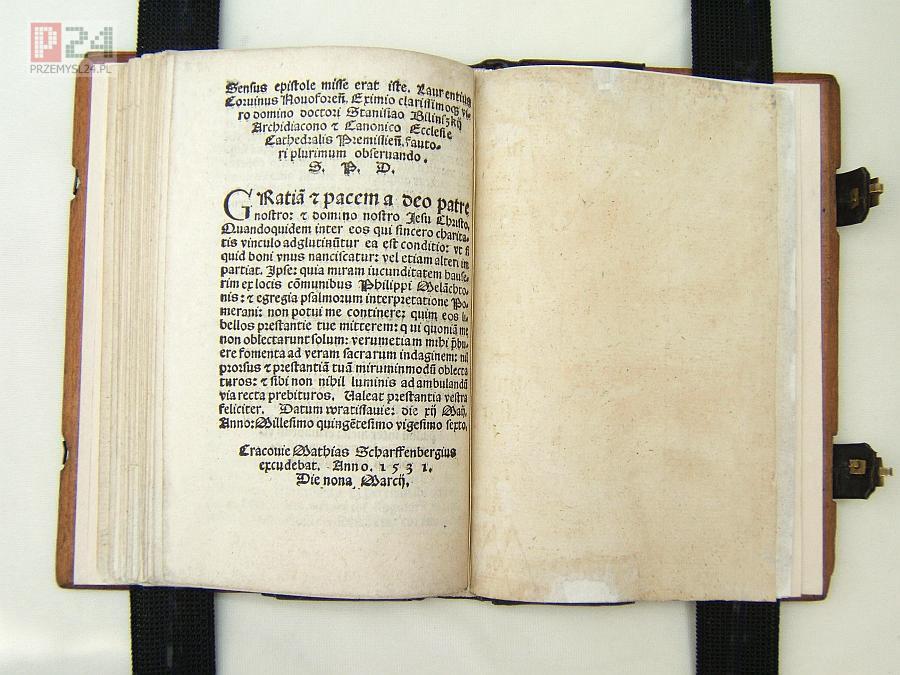 P24
PRZEMYSL24.PL
Sensus epistole misse erat iste. Laurentius
Coruinus Nouoforeñ. Eximio clarissimoq; vi-
ro domino doctori Stanislao Bilinszkij
Archidiacono ⁊ Canonico Ecclesie
Cathedralis Premislieñ. fauto-
ri plurimum obseruando.
S. P. D.
GRatiã ⁊ pacem a deo patre
nostro: ⁊ domino nostro Jesu Christo.
Quandoquidem inter eos qui sincero charita-
tis vinculo adglutinãtur ea est conditio: vt si
quid boni vnus nanciscatur: vel etiam alteri im
partiat. Ipse: quia miram iucunditatem hause-
rim ex locis cõmunibus Philippi Melãchto-
nis: ⁊ egregia psalmorum interpretatione Po-
merani: non potui me continere: quim eos li-
bellos prestantie tue mitterem: qui quoniã me
non oblectarunt solum: verumetiam mihi p̃bu-
ere fomenta ad veram sacrarum indaginem: nil
prorsus ⁊ prestantiã tuã mirummodũ oblecta
turos: ⁊ sibi non nihil luminis ad ambulandũ
via recta prebituros. Ualeat prestantia vestra
feliciter. Datum wratislauie: die xij Maij.
Anno: Millesimo quingẽtesimo vigesimo sexto.
Cracouie Mathias Scharffenbergius
excudebat. Anno. 1531.
Die nona Marcij.